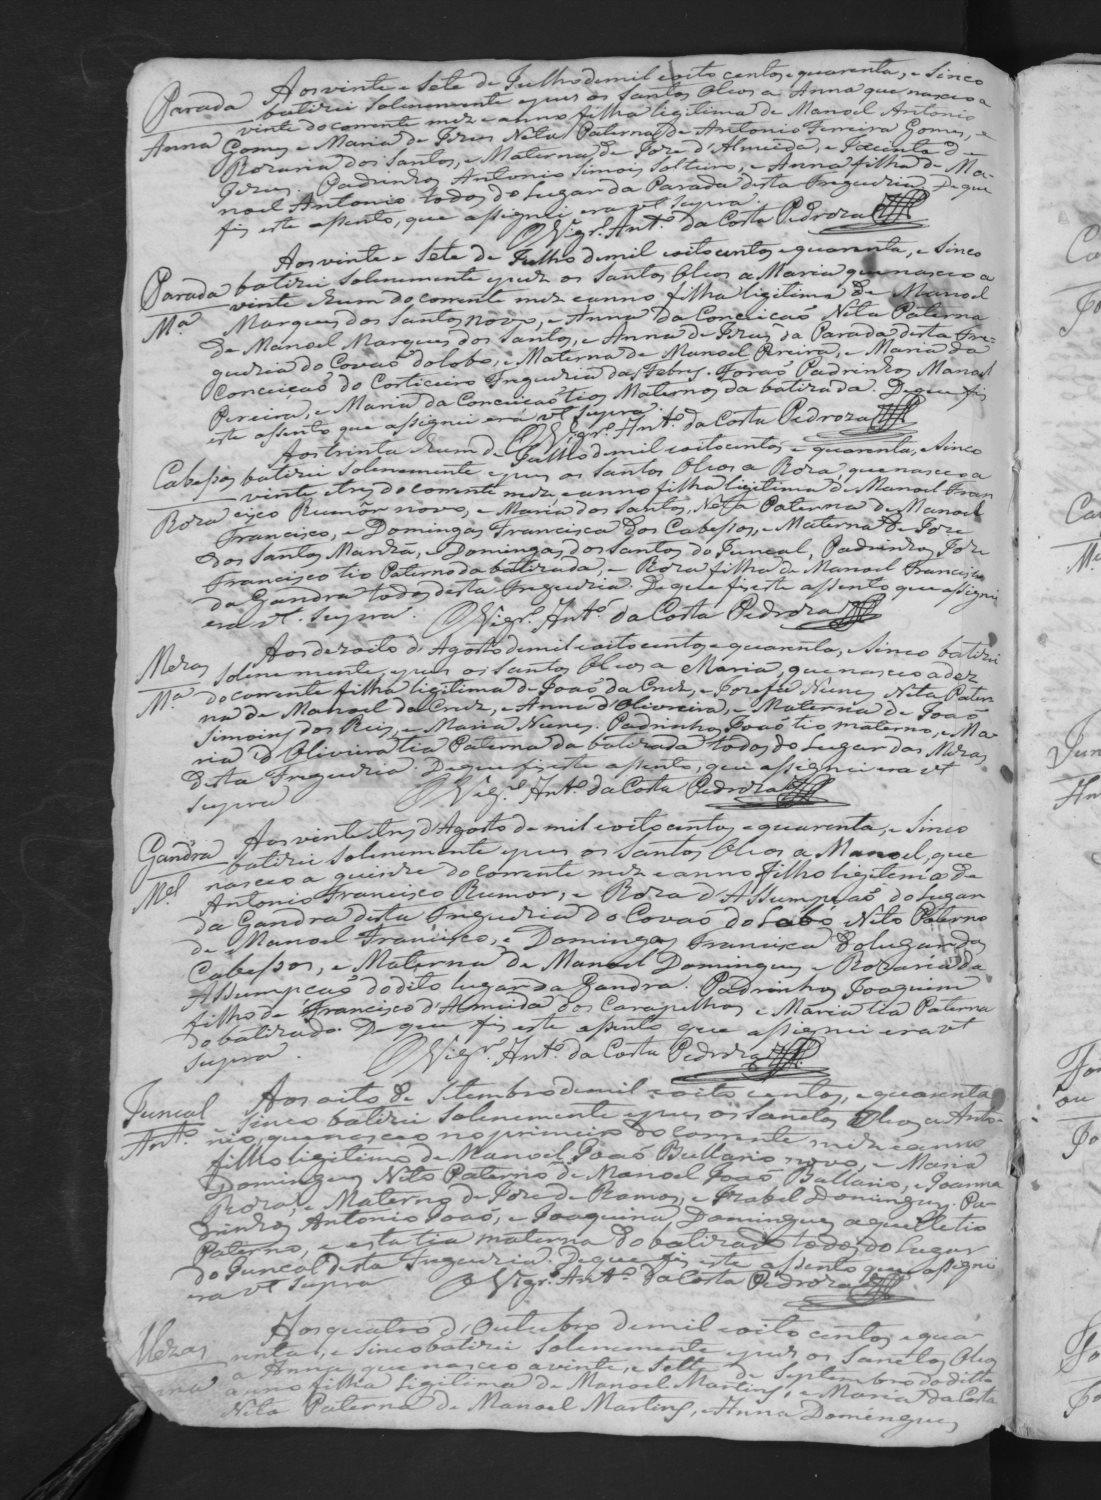 Parada
Anna
Aos vinte e Sete de Julho de mil e oito centos e quarenta, e Sinco
batizei Solenemente e puz os Santos Oleos a Anna que nasceo a
vinte do corrente mez e anno filha legitima de Manoel Antonio
Gomes e Maria de Jezus Neta Paterna de Antonio Ferreira Gomes, e
Rozaria dos Santos, e Materna de Joze d'Almeida, e Jacinta de
Jezus. Padrinhos Antonio Simois Solteiro, e Anna filha de Ma-
noel Antonio todos do Lugar da Parada desta Freguezia De que
fiz este assento, que assignei era vt supra.
O Vigr.º Ant.º da Costa Pedroza
Parada
M.ª
Aos vinte e Sete de Julho de mil e oito centos e quarenta, e Sinco
batizei Solenemente e puz os Santos Oleos a Maria que nasceo a
vinte e hum do corrente mez e anno filha legitima de Manoel
Marques dos Santos novo, e Anna da Conceicaõ Neta Paterna
de Manoel Marques dos Santos, e Anna de Jezus da Parada desta Fre-
guezia do Covaõ do Lobo, e Materna de Manoel Pereira, e Maria da
Conceiçaõ do Corticeiro Freguezia das Febres. Foraõ Padrinhos Manoel
Pereira, e Maria da Conceicaõ tios Maternos da batizada. De que fiz
este assento que assignei era vt supra.
O Vigr.º Ant.º da Costa Pedroza
Cabessos
Roza
Aos trinta e hum de Julho de mil e oito centos e quarenta, e Sinco
batizei Solenemente e puz os Santos Oleos a Roza que nasceo a
vinte e tres do corrente mez, e anno filha legitima de Manoel Fran
cisco Rumor novo, e Maria dos Santos, Neta Paterna de Manoel
Francisco, e Domingas Francisca dos Cabessos, e Materna de Joze
dos Santos Manzã, e Domingas dos Santos do Juncal, Padrinhos Joze
Francisco tio Paterno da batizada, e Roza filha de Manoel Francisco
da Gandra todos desta Freguezia. De que fiz este assento que assignei
era vt. supra.
O Vigr.º Ant.º da Costa Pedroza
Mezas
M.ª
Aos dezoito d'Agosto de mil e oito centos e quarenta, e Sinco batizei
Solenemente e puz os Santos Oleos a Maria, que nasceo a dez
do corrente filha legitima de Joaõ da Cruz, e Jozefa Nunes Neta Pater
na de Manoel da Cruz, e Anna d'Oliveira, e Materna de Joaõ
Simoins dos Reis, e Maria Nunes. Padrinhos Joaõ tio materno, e Ma-
ria d'Oliveira tia Paterna da batizada todos do Lugar das Mezas
desta Freguezia. De que fiz este assento, que assignei era vt
supra
O Vigr.º Ant.º da Costa Pedroza
Gandra
M.el
Aos vinte e tres d'Agosto de mil e oito centos e quarenta, e Sinco
batizei Solenemente e puz os Santos Oleos a Manoel, que
nasceo a quinze do corrente mez e anno filho legitimo de
Antonio Francisco Rumor, e Roza d'Assumpçaõ do Lugar
da Gandra desta Freguezia do Covaõ do Lobo Neto Paterno
de Manoel Francisco, e Domingas Francisca do lugar dos
Cabessos, e Materna de Manoel Domingues e Rozaria da
Assumpcaõ do dito lugar da Gandra. Padrinhos Joaquim
filho de Francisco d'Almeida dos Carapelhos e Maria tia Paterna
do batizado. De que fiz este assento que assignei era vt
supra.
O Vigr.º Ant.º da Costa Pedroza
Juncal
Ant.º
Aos oito de Stembro de mil e oito centos, e quarenta
e Sinco batizei Solenemente e puz os Sanctos Oleos a Anto-
nio, que nasceo no primeiro do corrente mez e anno
filho legitimo de Manoel Joaõ Ballario novo, e Maria
Domingues Neto Paterno de Manoel Joaõ Ballario, e Joanna
Roza, e Materno de Joze de Ramos, e Izabel Domingues. Pa-
drinhos Antonio Joaõ, e Joaquina Domingues aquelle tio
Paterno, e esta tia materna do batizado todos do Lugar
do Juncal desta Freguezia. De que fiz este assento que assignei
era vt supra
O Vigr.º Ant.º da Costa Pedroza
Mezas
Aos quatro d'Outubro de mil e oito centos e qua-
renta, e Sinco batizei Solenemente e puz os Sanctos Oleos
a Anna, que nasceo a vinte, e Sette de Septembro do ditto
anno filha Legitima de Manoel Martins, e Maria da Costa
Neta Paterna de Manoel Martins, e Anna Domingues